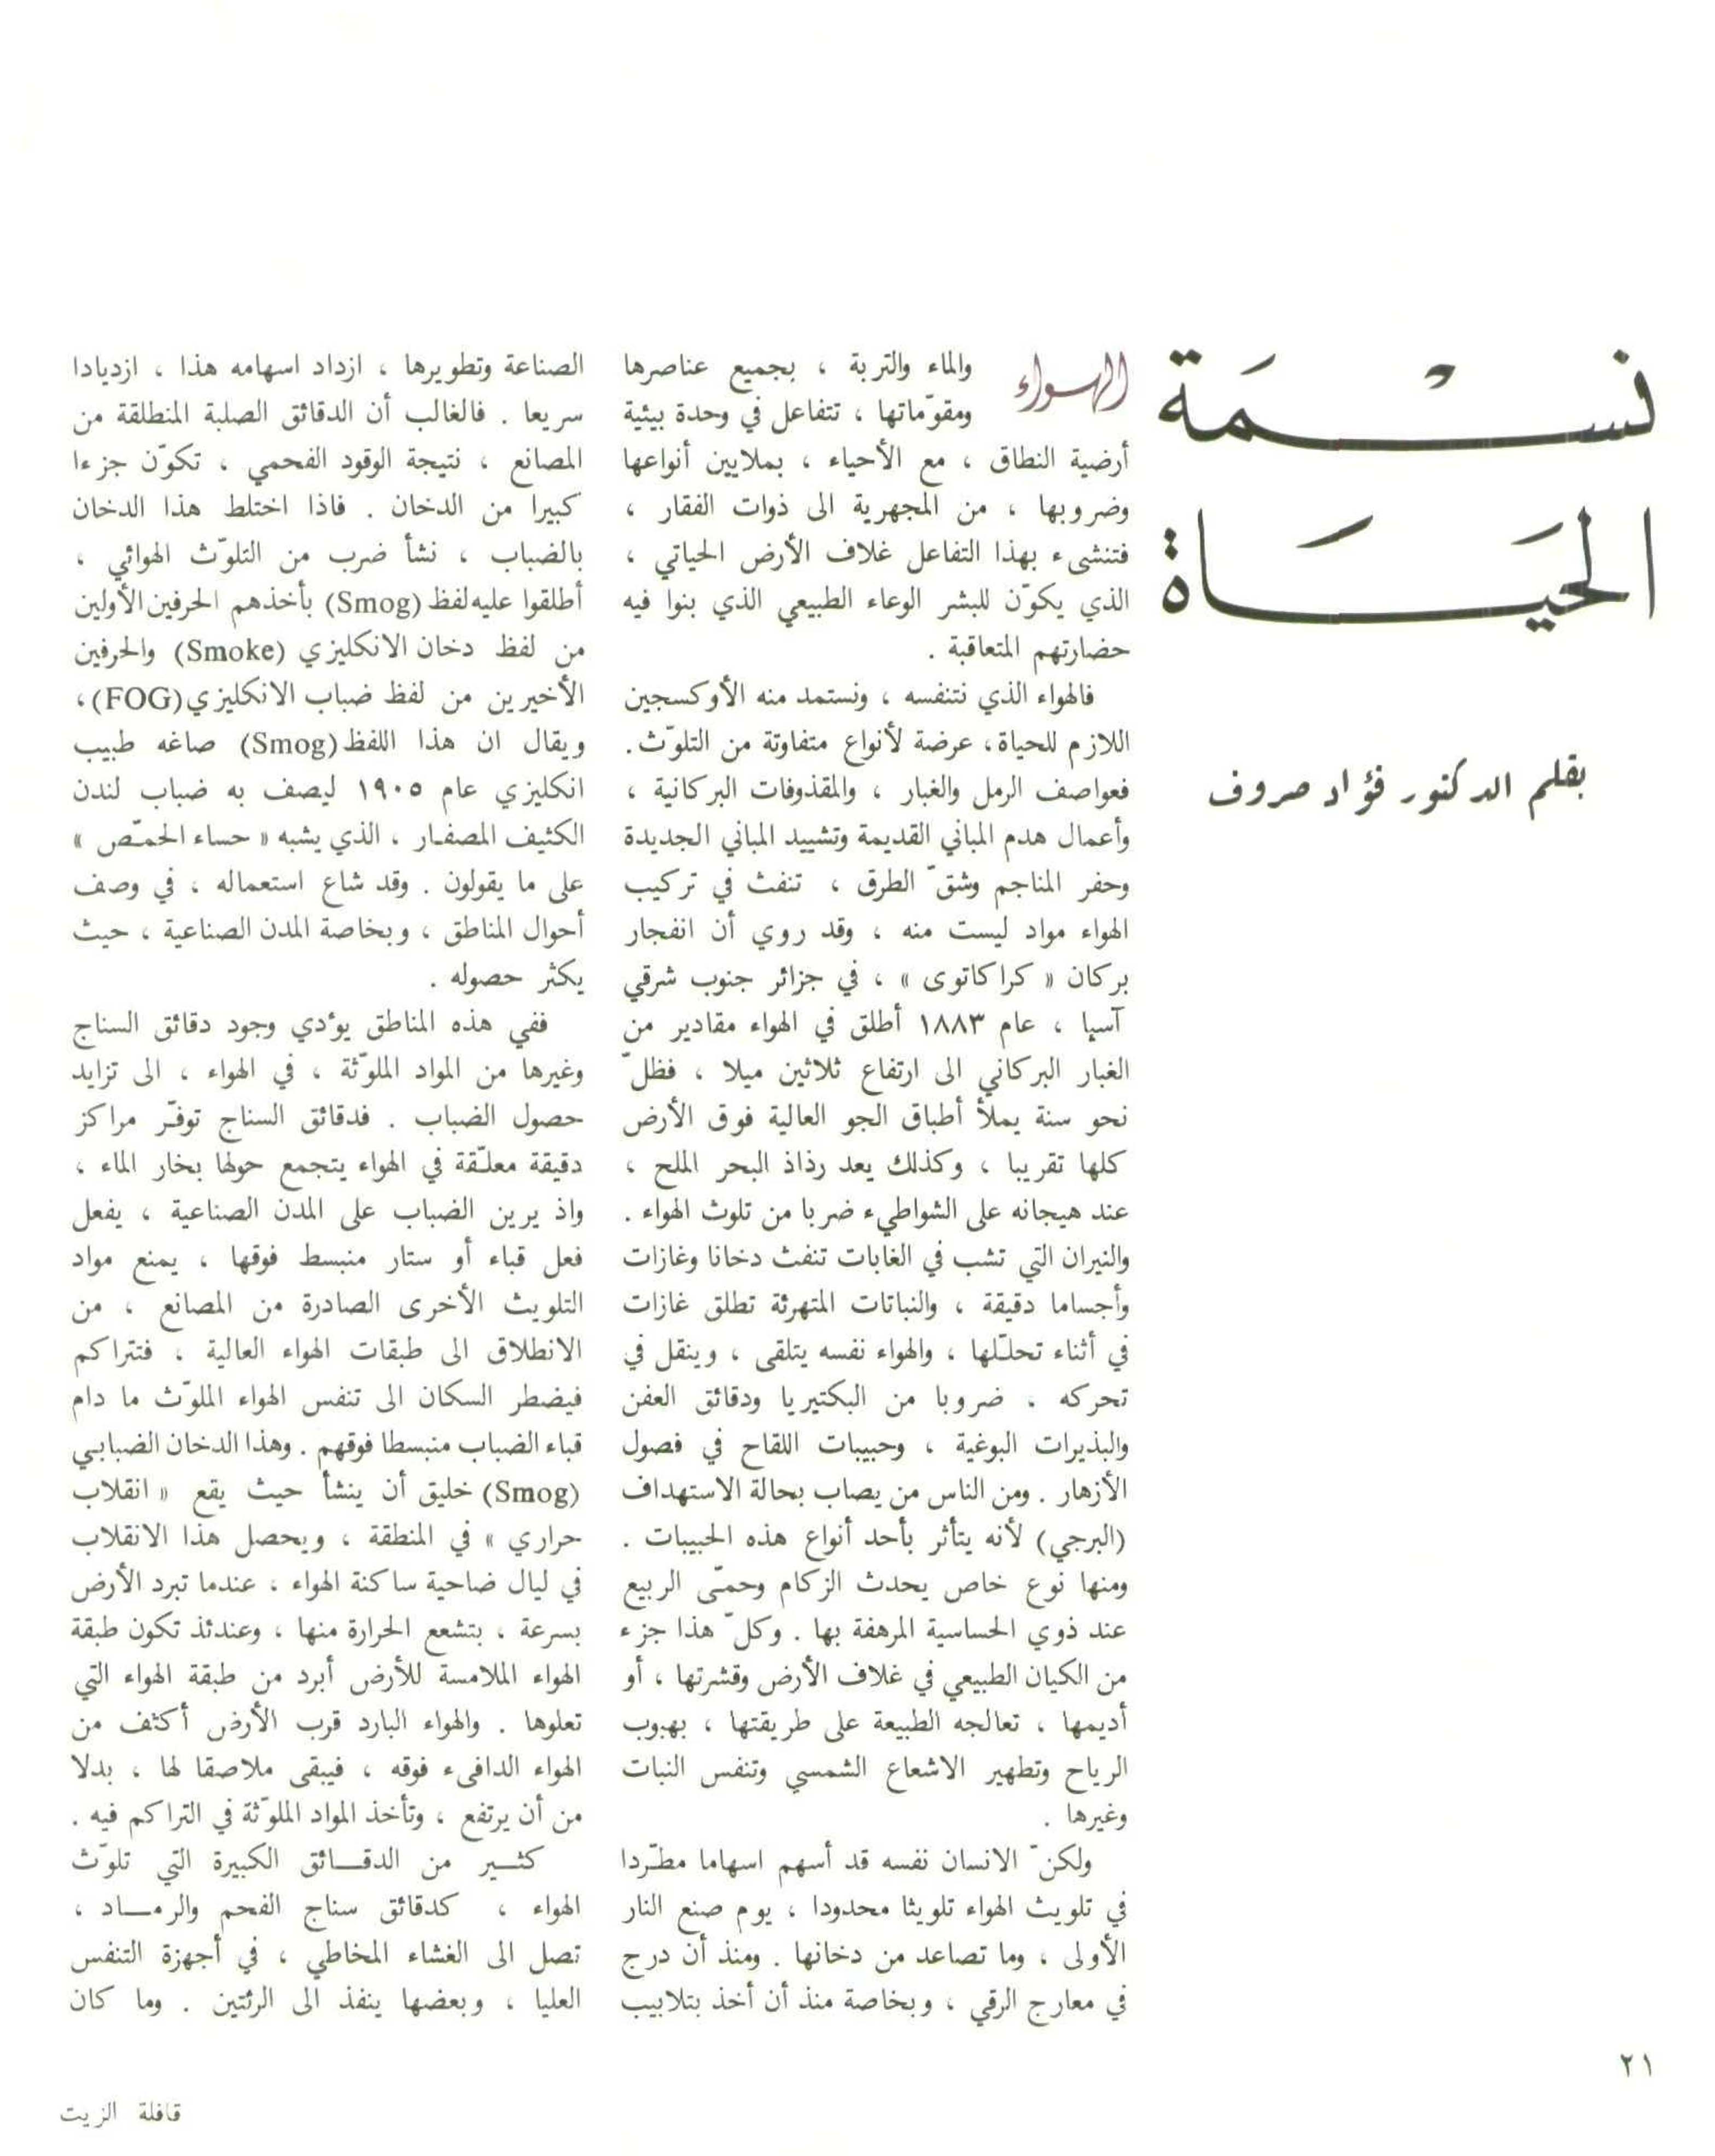 نسْمَة
الحَيَاة
بقلم الدكتور فؤاد صروف
الهواء والماء والتربة ، بجميع عناصرها
ومقوّماتها ، تتفاعل في وحدة بيئية
أرضية النطاق ، مع الأحياء ، بملايين أنواعها
وضروبها ، من المجهرية الى ذوات الفقار ،
فتنشىء بهذا التفاعل غلاف الأرض الحياتي ،
الذي يكوّن للبشر الوعاء الطبيعي الذي بنوا فيه
حضارتهم المتعاقبة .
فالهواء الذي نتنفسه ، ونستمد منه الأوكسجين
اللازم للحياة، عرضة لأنواع متفاوتة من التلوّث.
فعواصف الرمل والغبار ، والمقذوفات البركانية ،
وأعمال هدم المباني القديمة وتشييد المباني الجديدة
وحفر المناجم وشقّ الطرق ، تنفث في تركيب
الهواء مواد ليست منه ، وقد روي أن انفجار
بركان « كراكاتوى » ، في جزائر جنوب شرقي
آسيا ، عام ١٨٨٣ أطلق في الهواء مقادير من
الغبار البركاني الى ارتفاع ثلاثين ميلا ، فظلّ
نحو سنة يملأ أطباق الجو العالية فوق الأرض
كلها تقريبا ، وكذلك يعد رذاذ البحر الملح ،
عند هيجانه على الشواطيء ضربا من تلوث الهواء .
والنيران التي تشب في الغابات تنفث دخانا وغازات
وأجساما دقيقة ، والنباتات المتهرئة تطلق غازات
في أثناء تحلّلها ، والهواء نفسه يتلقى ، وينقل في
تحركه ، ضروبا من البكتيريا ودقائق العفن
والبذيرات البوغية ، وحبيبات اللقاح في فصول
الأزهار . ومن الناس من يصاب بحالة الاستهداف
(البرجي) لأنه يتأثر بأحد أنواع هذه الحبيبات .
ومنها نوع خاص يحدث الزكام وحمّى الربيع
عند ذوي الحساسية المرهفة بها . وكلّ هذا جزء
من الكيان الطبيعي في غلاف الأرض وقشرتها ، أو
أديمها ، تعالجه الطبيعة على طريقتها ، بهبوب
الرياح وتطهير الاشعاع الشمسي وتنفس النبات
وغيرها .
ولكنّ الانسان نفسه قد أسهم اسهاما مطّردا
في تلويث الهواء تلويثا محدودا ، يوم صنع النار
الأولى ، وما تصاعد من دخانها . ومنذ أن درج
في معارج الرقي ، وبخاصة منذ أن أخذ بتلابيب
الصناعة وتطويرها ، ازداد اسهامه هذا ، ازديادا
سريعا . فالغالب أن الدقائق الصلبة المنطلقة من
المصانع ، نتيجة الوقود الفحمي ، تكوّن جزءا
كبيرا من الدخان . فاذا اختلط هذا الدخان
بالضباب ، نشأ ضرب من التلوّث الهوائي ،
أطلقوا عليه لفظ (Smog) بأخذهم الحرفين الأولين
من لفظ دخان الانكليزي (Smoke) والحرفين
الأخيرين من لفظ ضباب الانكليزي (FOG)،
ويقال ان هذا اللفظ (Smog) صاغه طبيب
انكليزي عام ١٩٠٥ ليصف به ضباب لندن
الكثيف المصفار ، الذي يشبه « حساء الحمّص »
على ما يقولون . وقد شاع استعماله ، في وصف
أحوال المناطق ، وبخاصة المدن الصناعية ، حيث
يكثر حصوله .
ففي هذه المناطق يؤدي وجود دقائق السناج
وغيرها من المواد الملوّثة ، في الهواء ، الى تزايد
حصول الضباب . فدقائق السناج توفّر مراكز
دقيقة معلّقة في الهواء يتجمع حولها بخار الماء ،
واذ يرين الضباب على المدن الصناعية ، يفعل
فعل قباء أو ستار منبسط فوقها ، يمنع مواد
التلويث الأخرى الصادرة من المصانع ، من
الانطلاق الى طبقات الهواء العالية ، فتتراكم
فيضطر السكان الى تنفس الهواء الملوّث ما دام
قباء الضباب منبسطا فوقهم . وهذا الدخان الضبابي
(Smog) خليق أن ينشأ حيث يقع « انقلاب
حراري » في المنطقة ، ويحصل هذا الانقلاب
في ليال ضاحية ساكنة الهواء ، عندما تبرد الأرض
بسرعة ، بتشعع الحرارة منها ، وعندئذ تكون طبقة
الهواء الملامسة للأرض أبرد من طبقة الهواء التي
تعلوها . والهواء البارد قرب الأرض أكثف من
الهواء الدافىء فوقه ، فيبقى ملاصقا لها ، بدلا
من أن يرتفع ، وتأخذ المواد الملوّثة في التراكم فيه .
كثير من الدقائق الكبيرة التي تلوّث
الهواء ، كدقائق سناج الفحم والرماد ،
تصل الى الغشاء المخاطي ، في أجهزة التنفس
العليا ، وبعضها ينفذ الى الرئتين . وما كان
٢١
قافلة الزيت